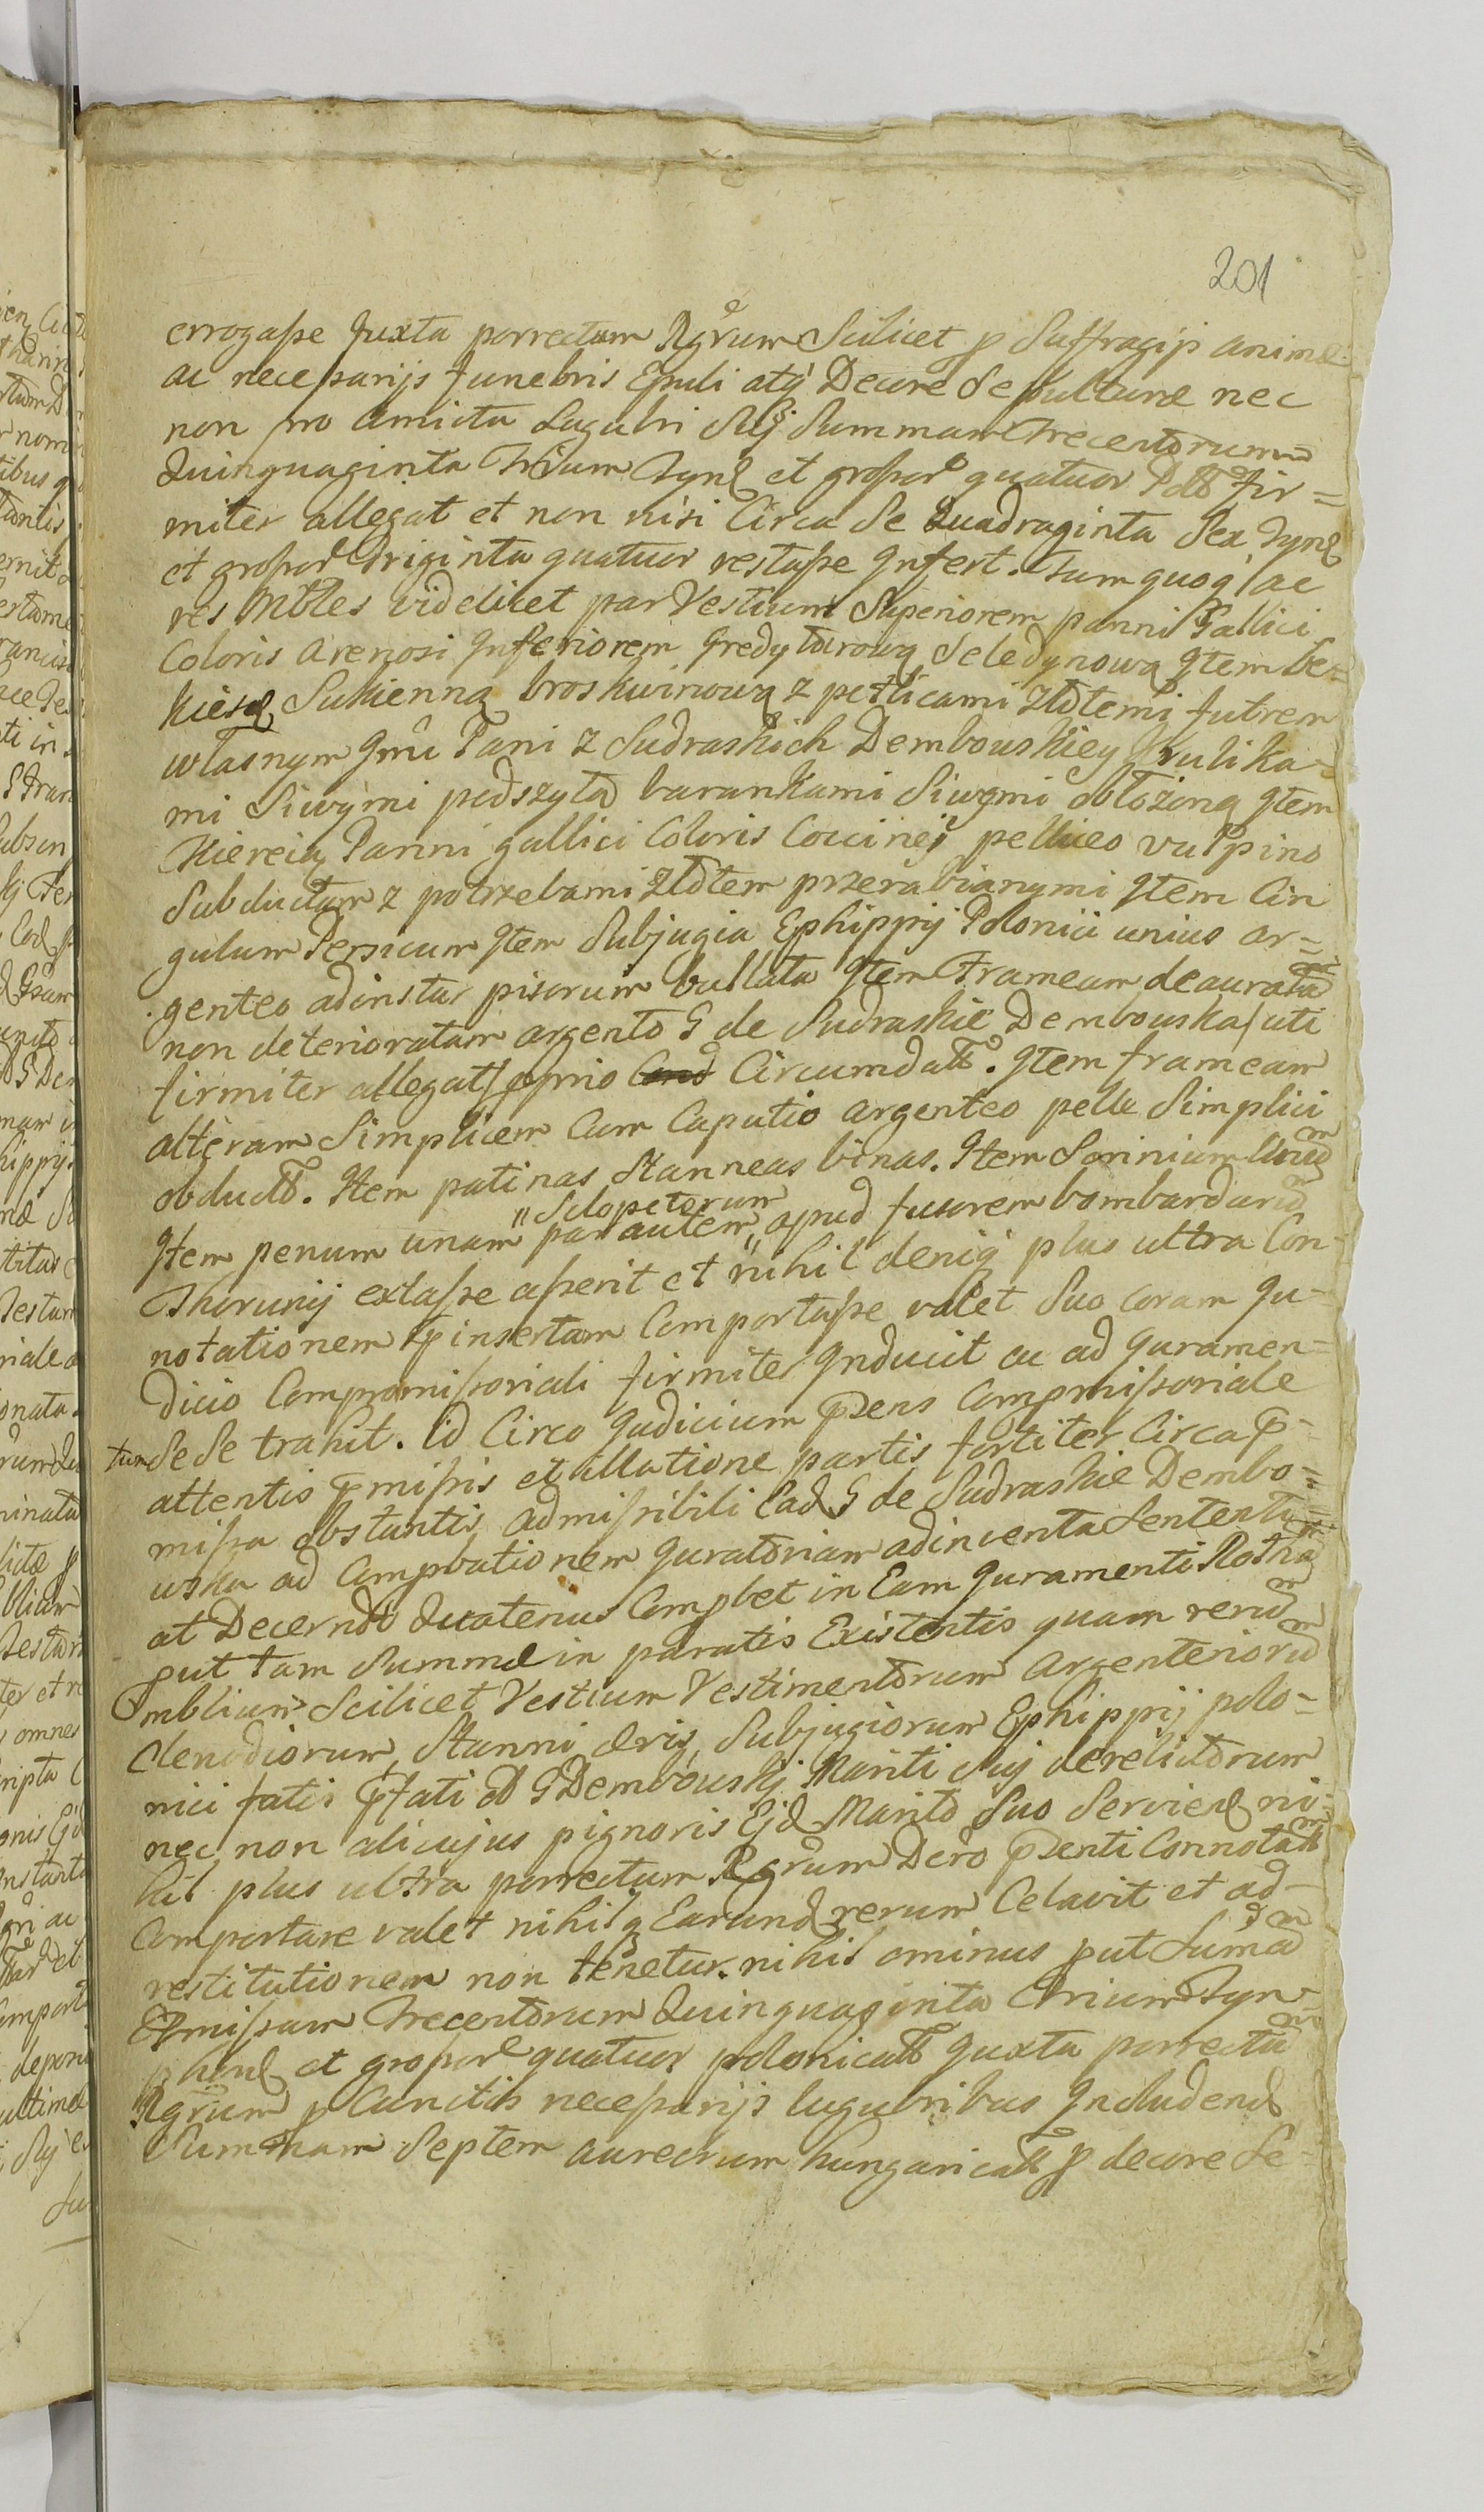 201
errogasse Juxta porrectum Rgrũm Scilicet p Suffragijs animæ
ac necessarijs funebris Epuli atq Decore Sepulturæ nec
non pro amictu Lugubri Suj Summam Trecentorum
Quinquaginta Trium Tynf et grossor quatuor Poll fir=
miter allegat et non nisi Circa Se Quadraginta Sex Tynf
et grossor Triginta quatuor restasse Infert. Tum quoq ac
res Mbles videlicet par Vestium Superiorem panni Gallici
Coloris arenosi Inferiorem Gredyturową Seledynową Item Be=
kieszę Sukienną broskwinową z petlicami złotemi futrem
własnym Jm̃ Pani z Sudraskich Dembowskiey krulika-
mi Siwymi podszytą barankami Siwymi obłożoną Item
Kiereią Panni gallici Coloris Coccinej pelliceo vulpino
Subductam z potrzebami złotem przerabianymi Item Cin
gulum Persicum Item Subjugia Ephippij Polonici unius ar=
genteo adinstar pisorum bullata Item Frameam deauratã
non deterioratam argento G de Sudraskie Dembowska /uti
firmiter allegat/ pprio Circumdatt. Item frameam
alteram Simplicem Cum Caputio argenteo pelle Simplici
obductã. Item patinas Stanneas binas. Item Scrinium Unũ
Item penum unam "par autem" apud fusorem bombardarũ
" Sclopetorum
Thorunij extasse asserit et nihil deniq plus ultra Con-
notationem insertam Comportasse valet Suo Coram Ju-
dicio Compromissoriali firmiter Inducit ac ad Juramen=
tum Sese trahit. Id Circo Judicium pzens Compromissoriale
attentis pmissis et illatione partis fortiter Circa p-
missa obstantis admissibili Ead G de Sudraskie Dembo=
wska ad Comprobationem Juratoriam adinventa Sententi
at Decerndo Quatenus Comprobet in Eam Juramenti Rothã
put tam Summæ in paratis Existentis quam rerũ
mblium Scilicet Vestium Vestimentorum Argenteriorũ
Clenodiorum, Stanni æris, Subjugiorum Ephippij polo-
nici fatis pfati G Dembowskj Mariti Suj derelictorum
nec non alicujus pignoris Ejd Marito Suo Serviend ni-
hil plus ultra porrectum Rgrũm Dero pzenti Connotatt
Comportare valet nihilq Earund rerum Celavit et ad-
restitutionem non tenetur. nihil ominus put Sumã
Pmissam Trecentorum Quinquaginta Trium Tyn-
phonl et grossor quatuor polonicall Juxta porrectũ
Rgrũm p Cunctis necessarijs lugubribus Includend
Summam Septem aureorum hungaricall p decore Se-